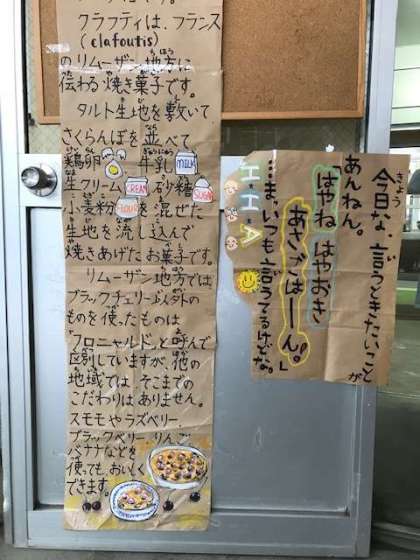 クラフティは、フランス
(clafoutis)
のリムーザン地方に
伝わる焼き菓子です。
タルト生地を敷いて
さくらんぼを並べて
鶏卵 牛乳 MILK
生クリーム CREAM 砂糖 SUGAR
小麦粉 flour を混ぜた
生地を流し込んで
焼きあげたお菓子です。
リムーザン地方では
ブラックチェリー以外の
ものを使ったものは
「フロニャルド」と呼んで
区別していますが、他の
地域ではそこまでの
こだわりはありません。
スモモやラズベリー
ブラックベリー、りんご
バナナなどを
使っても、おいしく
できます。
今日な、言うときたいことが
きょう
あんねん。
はやね はやおき
あさごはーん!
…ま、いつも言うてるけどな。」
H·H·A